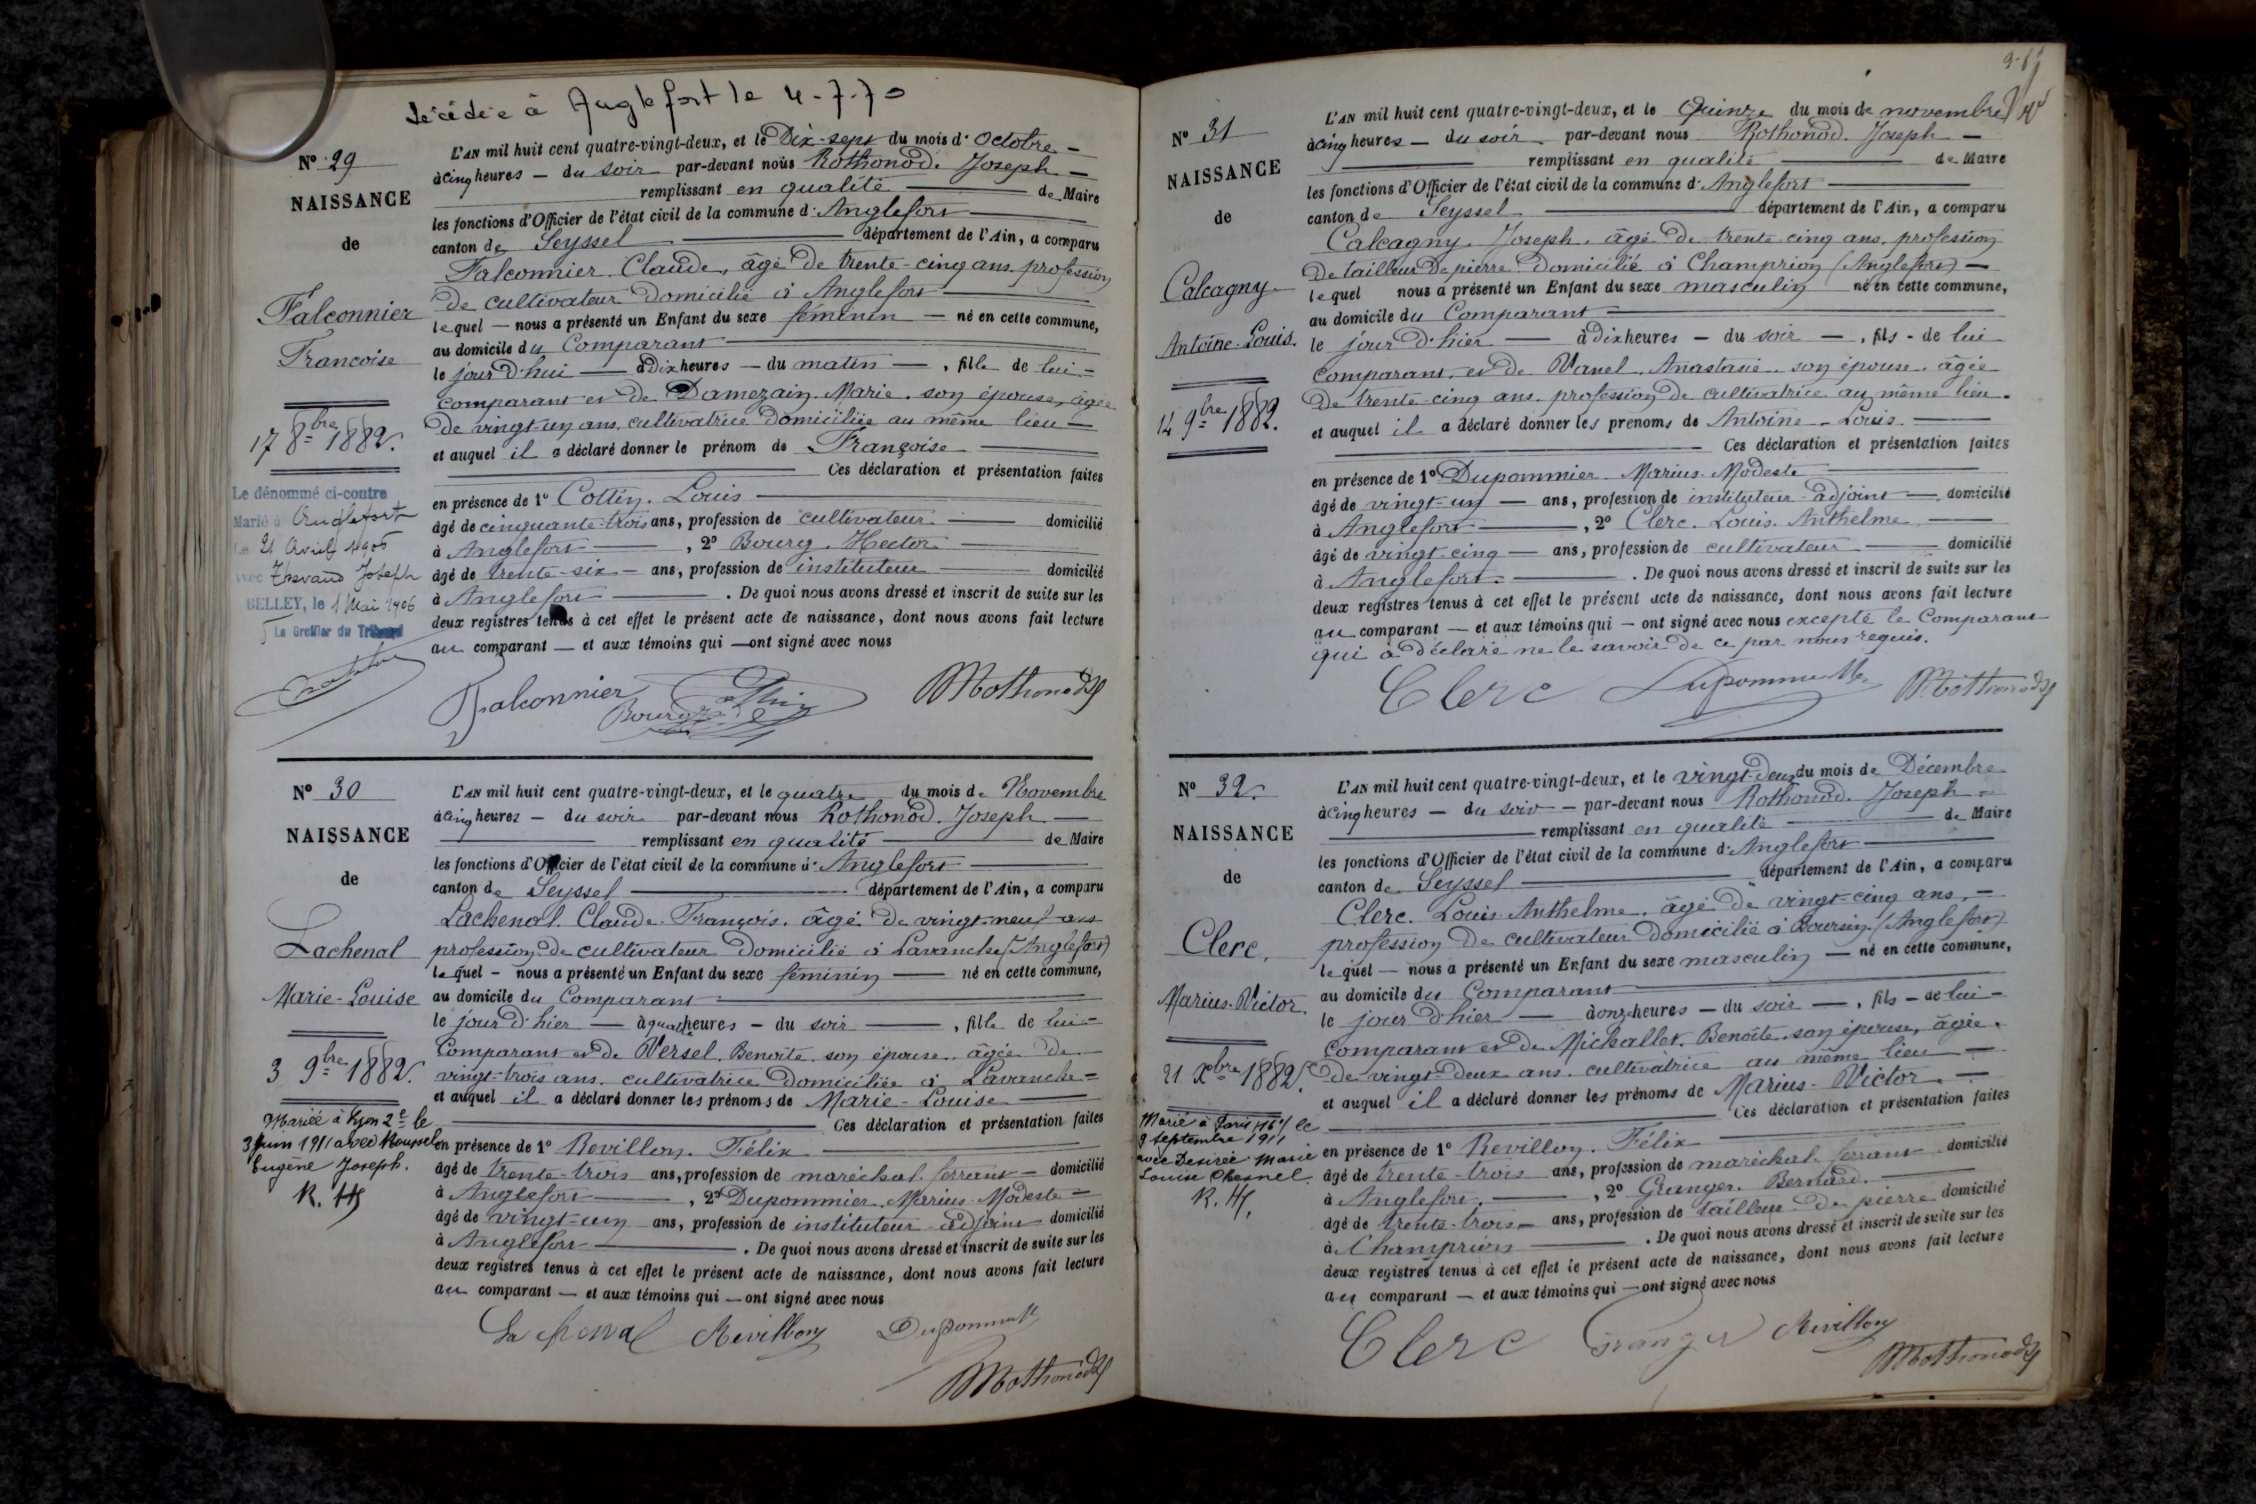 décédée à Anglefort le 4-7-70
N° 29
NAISSANCE
de
Falconnier
Françoise
17 8bre 1882.
Le dénommé ci-contre
Marié à Anglefort
Le 21 Avril 1906
avec Joseph
BELLEY, le 1 Mai 1906
Le Greffier du Tribunal
L'AN mil huit cent quatre-vingt-deux, et le Dix-sept du mois d'Octobre
à cinq heures — du soir par-devant nous Rothonod. Joseph —
remplissant en qualité de Maire
les fonctions d'Officier de l'état civil de la commune d'Anglefort
canton de Seyssel département de l'Ain, a comparu
Falconnier Claude, âgé de trente-cinq ans profession
de cultivateur domicilié à Anglefort
lequel — nous a présenté un Enfant du sexe féminin — né en cette commune,
au domicile du Comparant
le jour d'hui — à Dix heures — du matin — , fille de lui
comparant et de Damezain Marie son épouse, âgée
de vingt-un ans, cultivatrice domiciliée au même lieu —
et auquel il a déclaré donner le prénom de Françoise
Ces déclaration et présentation faites
en présence de 1° Cottin. Louis
âgé de cinquante-trois ans, profession de cultivateur domicilié
à Anglefort , 2° Bourg. Hector
âgé de trente-six — ans, profession de instituteur domicilié
à Anglefort . De quoi nous avons dressé et inscrit de suite sur les
deux registres tenus à cet effet le présent acte de naissance, dont nous avons fait lecture
au comparant — et aux témoins qui — ont signé avec nous
Falconnier Bourg Cottin Rothonod
N° 30
NAISSANCE
de
Lachenal
Marie-Louise
3 9bre 1882.
Mariée à Lyon 2e le
3 Juin 1911 avec Roussel
Eugène Joseph.
R. H
L'AN mil huit cent quatre-vingt-deux, et le quatre du mois de Novembre
à cinq heures — du soir par-devant nous Rothonod. Joseph —
remplissant en qualité de Maire
les fonctions d'Officier de l'état civil de la commune d'Anglefort
canton de Seyssel département de l'Ain, a comparu
Lachenal Claude-François. âgé de vingt-neuf ans
profession de cultivateur domicilié à Lavanche (Anglefort)
lequel — nous a présenté un Enfant du sexe féminin — né en cette commune,
au domicile du Comparant
le jour d'hier — à quatre heures — du soir — , fille de lui
Comparant et de Versel. Benoîte son épouse âgée de
vingt-trois ans. cultivatrice domiciliée à Lavanche
et auquel il a déclaré donner les prénoms de Marie-Louise
Ces déclaration et présentation faites
en présence de 1° Revillon. Félix
âgé de trente-trois ans, profession de maréchal ferrant — domicilié
à Anglefort , 2° Dupommier Marius-Modeste
âgé de vingt-un ans, profession de instituteur adjoint domicilié
à Anglefort . De quoi nous avons dressé et inscrit de suite sur les
deux registres tenus à cet effet le présent acte de naissance, dont nous avons fait lecture
au comparant — et aux témoins qui — ont signé avec nous
Lachenal Revillon Dupommier
Rothonod
N° 31
NAISSANCE
de
Calcagny
Antoine-Louis.
14 9bre 1882.
L'AN mil huit cent quatre-vingt-deux, et le Quinze du mois de novembre
à cinq heures — du soir par-devant nous Rothonod. Joseph —
remplissant en qualité de Maire
les fonctions d'Officier de l'état civil de la commune d'Anglefort
canton de Seyssel département de l'Ain, a comparu
Calcagny Joseph. âgé de trente cinq ans. profession
de tailleur de pierre domicilié à Champrion (Anglefort) —
lequel nous a présenté un Enfant du sexe masculin né en cette commune,
au domicile du Comparant
le jour d'hier — à Dix heures — du soir — , fils - de lui
comparant. et de Vanel Anastasie. son épouse. âgée
de trente cinq ans. profession de cultivatrice au même lieu.
et auquel il a déclaré donner les prénoms de Antoine-Louis.
Ces déclaration et présentation faites
en présence de 1° Dupommier Marius-Modeste
âgé de vingt-un — ans, profession de instituteur adjoint — domicilié
à Anglefort , 2° Clerc. Louis. Anthelme
âgé de vingt cinq — ans, profession de cultivateur domicilié
à Anglefort. . De quoi nous avons dressé et inscrit de suite sur les
deux registres tenus à cet effet le présent acte de naissance, dont nous avons fait lecture
au comparant — et aux témoins qui — ont signé avec nous excepté le Comparant
qui a déclaré ne le savoir de ce par nous requis.
Clerc Dupommier Rothonod
N° 32.
NAISSANCE
de
Clerc.
Marius-Victor.
21 Xbre 1882.
Marié à Paris (16e) le
9 Septembre 1911
avec Désirée Marie
Louise Chesnel.
R. H.
L'AN mil huit cent quatre-vingt-deux, et le vingt-deux du mois de Décembre
à cinq heures — du soir — par-devant nous Rothonod. Joseph
remplissant en qualité de Maire
les fonctions d'Officier de l'état civil de la commune d'Anglefort
canton de Seyssel département de l'Ain, a comparu
Clerc. Louis-Anthelme. âgé de vingt-cinq ans, —
profession de cultivateur domicilié à Boursin (Anglefort)
lequel — nous a présenté un Enfant du sexe masculin — né en cette commune,
au domicile du Comparant
le jour d'hier — à onze heures — du soir — , fils — de lui —
comparant et de Michallet. Benoîte. son épouse, âgée
de vingt-deux ans. cultivatrice au même lieu —
et auquel il a déclaré donner les prénoms de Marius-Victor. —
Ces déclaration et présentation faites
en présence de 1° Revillon. Félix
âgé de trente-trois ans, profession de maréchal ferrant domicilié
à Anglefort. , 2° Granger. Bernard.
âgé de trente-trois ans, profession de tailleur de pierre domicilié
à Champrion . De quoi nous avons dressé et inscrit de suite sur les
deux registres tenus à cet effet le présent acte de naissance, dont nous avons fait lecture
au comparant — et aux témoins qui — ont signé avec nous
Clerc Granger Revillon
Rothonod